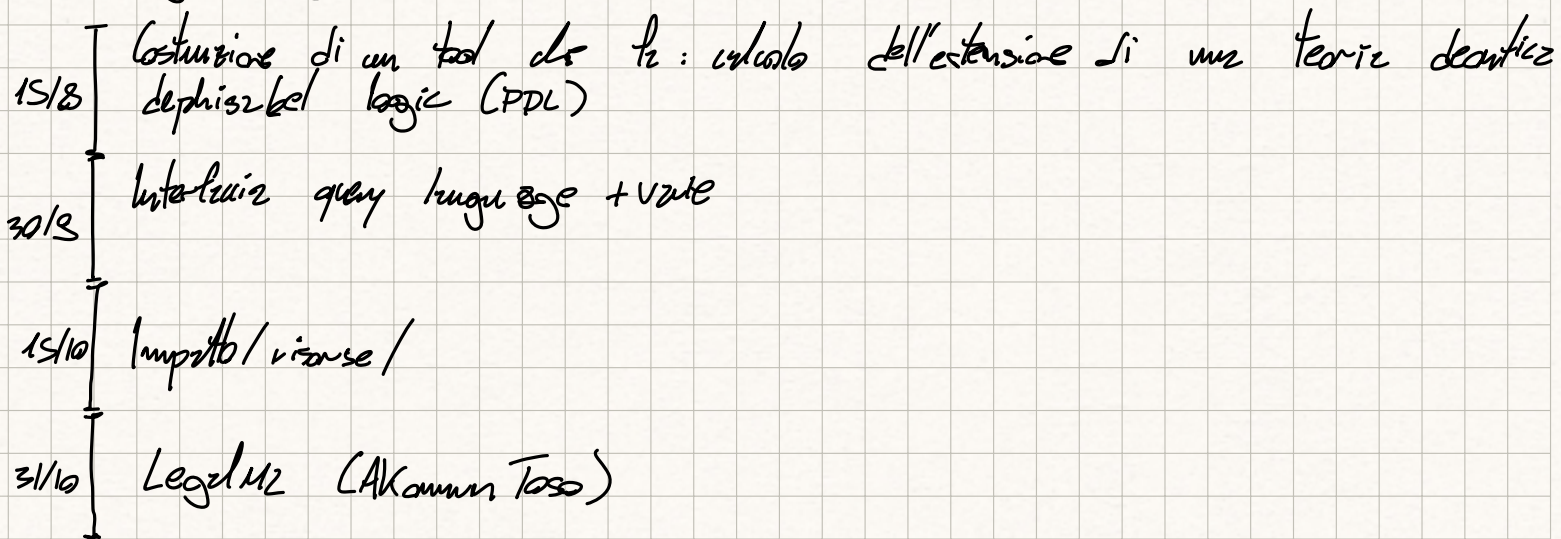 Costruzione di un tool che fa : calcolo dell'estensione di una teoria deontica
15/8 dephisabel logic (PDL)
Interfaccia query language + varie
30/9
15/10 Impatto/risorse/
31/10 Legal (AKomun Toso)